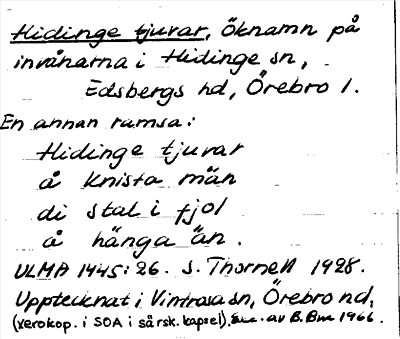 Hidinge tjuvar, öknamn på
invånarna i Hidinge sn,
Edsbergs hd, Örebro l.
En annan ramsa:
Hidinge tjuvar
å Knista män
di stal i fjol
å hänga än.
ULMA 1445:26. S. Thornell 1928.
Upptecknat i Vintrosa sn, Örebro hd,
(xerokop. i SOA i särsk. kapsel). av B. Bm 1966.